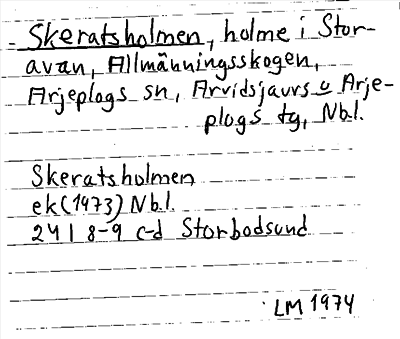 Skeratsholmen, holme i Stor-
avan, Allmänningsskogen,
Arjeplogs sn, Arvidsjaurs o Arje-
plogs tg, Nbl.
Skeratsholmen
ek (1973) Nbl.
24 I 8-9 c-d Storbodsund
LM 1974